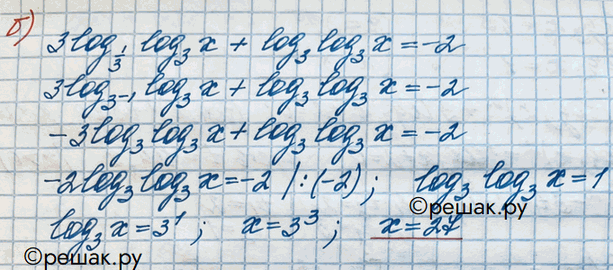 б)
3log_{1/3} log_3 x + log_3 log_3 x = -2
3log_{3^{-1}} log_3 x + log_3 log_3 x = -2
-3log_3 log_3 x + log_3 log_3 x = -2
-2log_3 log_3 x = -2 |:(-2); log_3 log_3 x = 1
©решак.ру
log_3 x = 3^1; x = 3^3; x = 27
©решак.ру